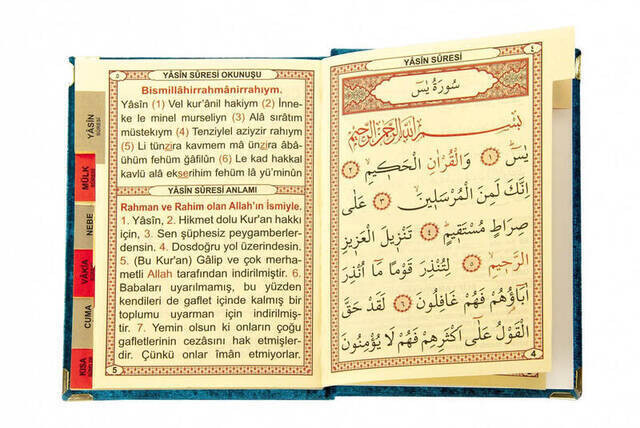 ٥ YÂSİN SÛRESİ OKUNUŞU
Bismillâhirrahmânirrahıym.
Yâsîn (1) Vel kur'ânil hakiym (2) İnne-
ke le minel murseliyn (3) Alâ sırâtım
müstekıym (4) Tenziylel azîyzir rahıym
(5) Li tünzira kavmem mâ ünzira âbâ-
ühüm fehüm ğâfilûn (6) Le kad hakkal
kavlü alâ ekserihim fehüm lâ yü'minûn
YÂSİN SÛRESİ ANLAMI
Rahman ve Rahim olan Allah'ın İsmiyle.
1. Yâsîn, 2. Hikmet dolu Kur'an hakkı
için, 3. Sen şüphesiz peygamberler-
densin. 4. Dosdoğru yol üzerindesin.
5. (Bu Kur'an) Gâlip ve çok merha-
metli Allah tarafından indirilmiştir. 6.
Babaları uyarılmamış, bu yüzden
kendileri de gaflet içinde kalmış bir
toplumu uyarman için indirilmiş-
tir. 7. Yemin olsun ki onların çoğu
gafletlerinin cezasını hak etmişler-
dir. Çünkü onlar îmân etmiyorlar.
5
YÂSİN
SÛRESİ
MÜLK
NEBE
VÂKIA
CUMA
KISA
YÂSİN SÛRESİ ٤
سُورَةُ يٰسٓ
بِسْمِ اللّٰهِ الرَّحْمٰنِ الرَّحِيمِ
يٰسٓ ﴿١﴾ وَالْقُرْاٰنِ الْحَكِيمِ ﴿٢﴾
اِنَّكَ لَمِنَ الْمُرْسَلِينَ ﴿٣﴾ عَلٰى
صِرَاطٍ مُسْتَقِيمٍ ﴿٤﴾ تَنْزِيلَ الْعَزِيزِ
الرَّحِيمِ ﴿٥﴾ لِتُنْذِرَ قَوْمًا مَٓا اُنْذِرَ
اٰبَٓاؤُهُمْ فَهُمْ غَافِلُونَ ﴿٦﴾ لَقَدْ حَقَّ
الْقَوْلُ عَلٰٓى اَكْثَرِهِمْ فَهُمْ لَا يُؤْمِنُونَ
4